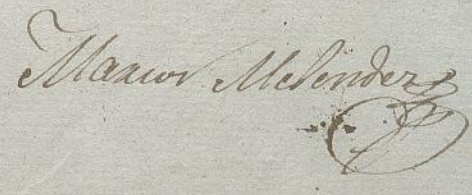 Marcos Melendez